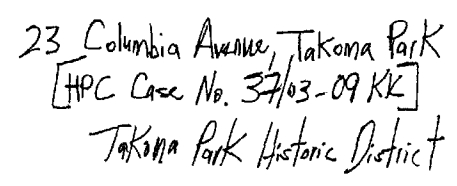 23 Columbia Avenue, Takoma Park
[HPC Case No. 37/03-09 KK]
Takoma Park Historic District